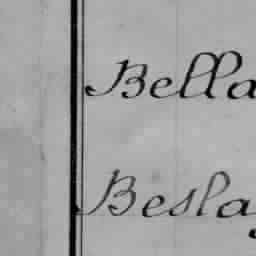 Bella
Beslay